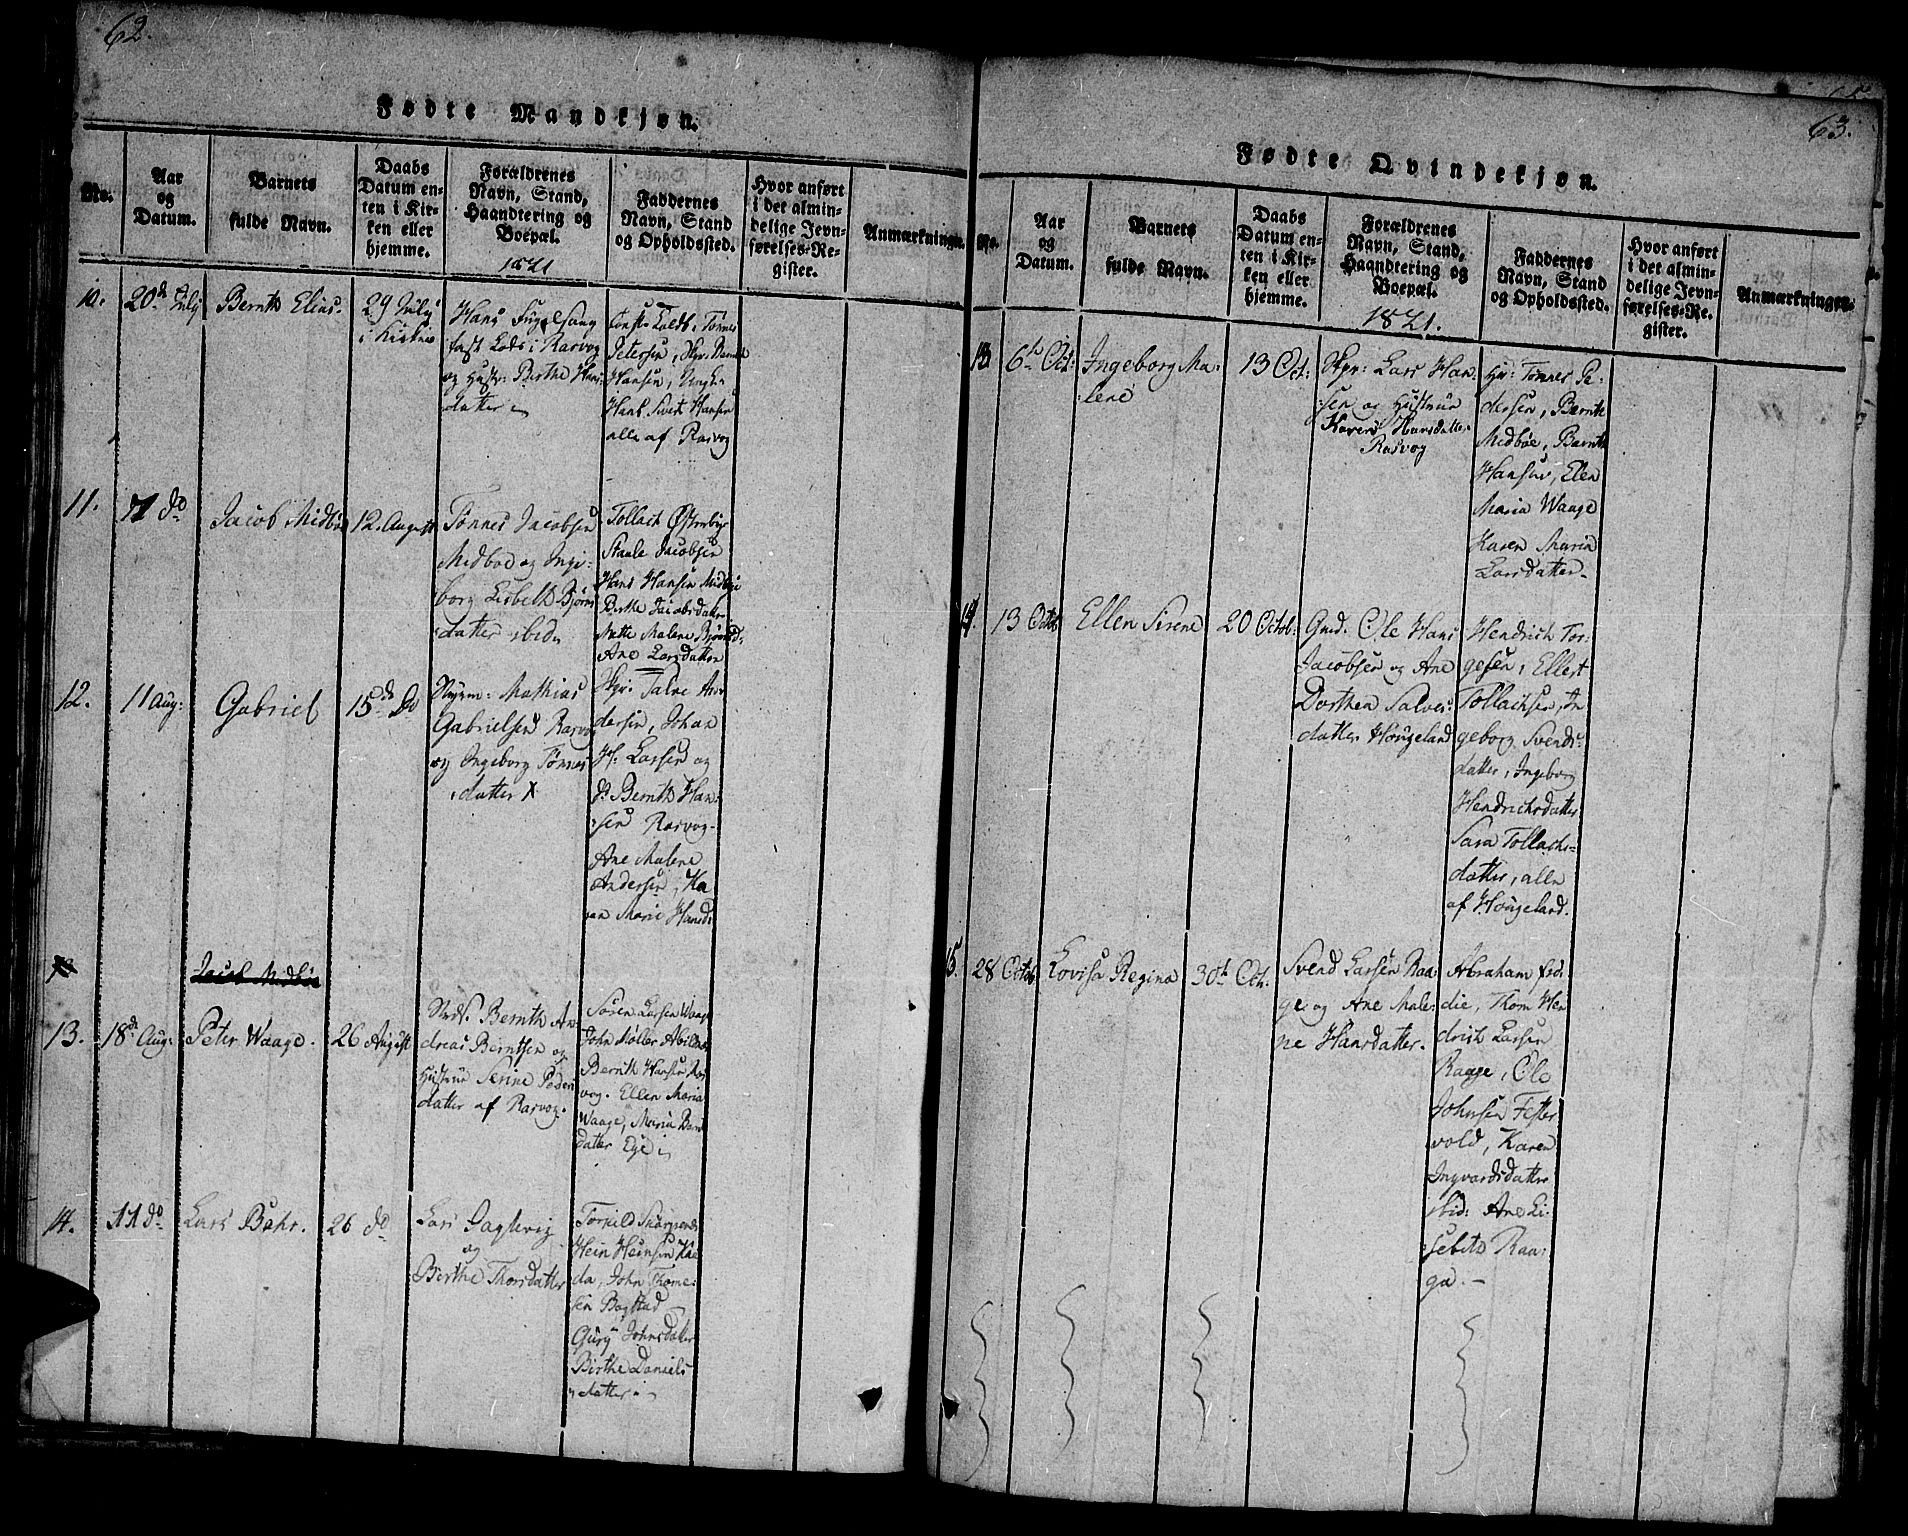 62.
Fødte Mandkjøn.
No.
Aar
og
Datum.
Barnets
fulde Navn.
Daabs
Datum en-
ten i Kir-
ken eller
hjemme.
Forældrenes
Navn, Stand,
Haandtering og
Boepæl.
1821
Faddernes
Navn, Stand
og Opholdssted.
Hvor anført
i det almin-
delige Jevn-
førelses-Re-
gister.
Anmærkninger.
10.
20de July
Bernth Elias.
29 July
i Kirken
Hans Fugelsang
fast Lods i Rasvog
og Hustr: Birthe Hans
datter
Tønnes
Petersen, Skpr: Bernth
Hansen, Ungk:
Hans Sivert Hansen
alle af Rasvog
11.
do
Jacob Midbøe
12. August
Tønnes Jacobsen
Midboe og Inge:
borg Lisbeth Bjørns
datter ibid
Tollach Østenbye
Staale Jacobsen
Hans Hansen Midbye
Birthe Jacobsdatter
Mette Malene Bjørnsd:
Ane Larsdatter
12.
11 Aug:
Gabriel
15de Do
Mathias
Gabrielsen Rasvog
og Ingeborg Tønnes
datter
Skpr: Salve An
dersen, Johan
H: Larsen og
Bernth Han:
sen Rasvog
Ane Malene
Andersen, Ka
ren Marie Hansd:
Jacob Midbøe
13.
18de Aug:
Peter Waage.
26 August
Bernth An
dreas Berntsen og
Hustrue Serine Peders
datter af Rasvog.
Søren Larsen Waage
John Møller Abilnes
Bernth Hansen Ras
vog. Ellen Maria
Waage, Maria Bernt
datter Eye
14.
11 do
Lars Bahr.
26 do
Lars Daglevig
og
Birthe Thorsdatter
Torkild Skarpenes
Hein Heinsen Kal
da, John Thome:
sen Bogstad
Gury Johnsdatter
Birthe Daniels
datter
63.
Fødte Qvindekjøn.
No.
Aar
og
Datum.
Barnets
fulde Navn.
Daabs
Datum en-
ten i Kir-
ken eller
hjemme.
Forældrenes
Navn, Stand,
Haandtering og
Boepæl.
1821.
Faddernes
Navn, Stand
og Opholdssted.
Hvor anført
i det almin-
delige Jevn-
førelses-Re-
gister.
Anmærkninger.
13.
6te Oct:
Ingeborg Ma:
lene
13 Oct:
Skpr: Lars Han:
sen og Hustrue
Karen Hansdatter
Rasvog
Hr: Tønnes Pe:
dersen, Bernth
Midbøe, Bernth
Hansen, Elen
Maria Waage
Karen Maria
Larsdatter.
14.
13 Octob
Ellen Sirene
20 Octob:
Gmd. Ole Hans
Jacobsen og Ane
Dorthea Salves:
datter Hougeland
Hendrich Tor:
gesen, Ellert
Tollachsen, In
geborg Svends:
datter, Ingeborg
Hendrichsdatter
Sara Tollachs=
datter, alle
af Hougeland.
15.
28 Octob
Lovisa Regina
30te Oct.
Svend Larsen Raa:
ge og Ane Male:
ne Hansdatter.
Abraham Fre
die, Thom Hen
drich Larsen
Raage, Ole
Johnsen Fetter
vold, Karen
Ingvardsdatter
ibid: Ane Li:
sebets Raa:
ge.